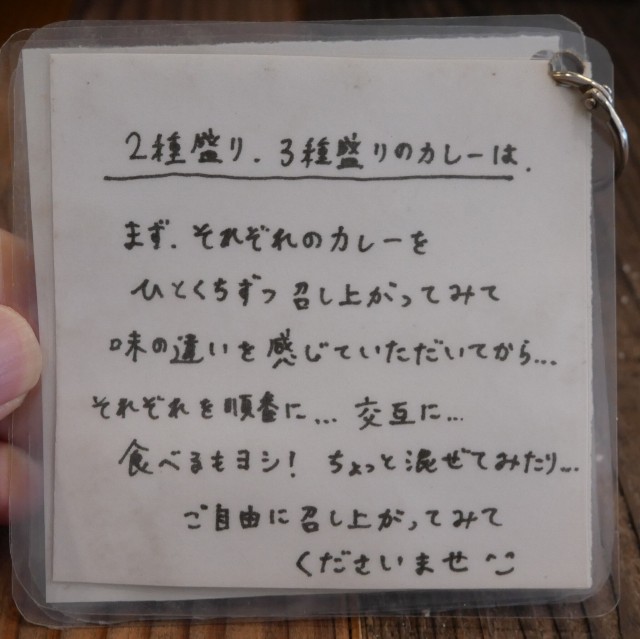 2種盛り、3種盛りのカレーは、
まず、それぞれのカレーを
ひとくちずつ召し上がってみて
味の違いを感じていただいてから…
それぞれを順番に…交互に…
食べるもヨシ！ちょっと混ぜてみたり…
ご自由に召し上がってみて
くださいませ^^